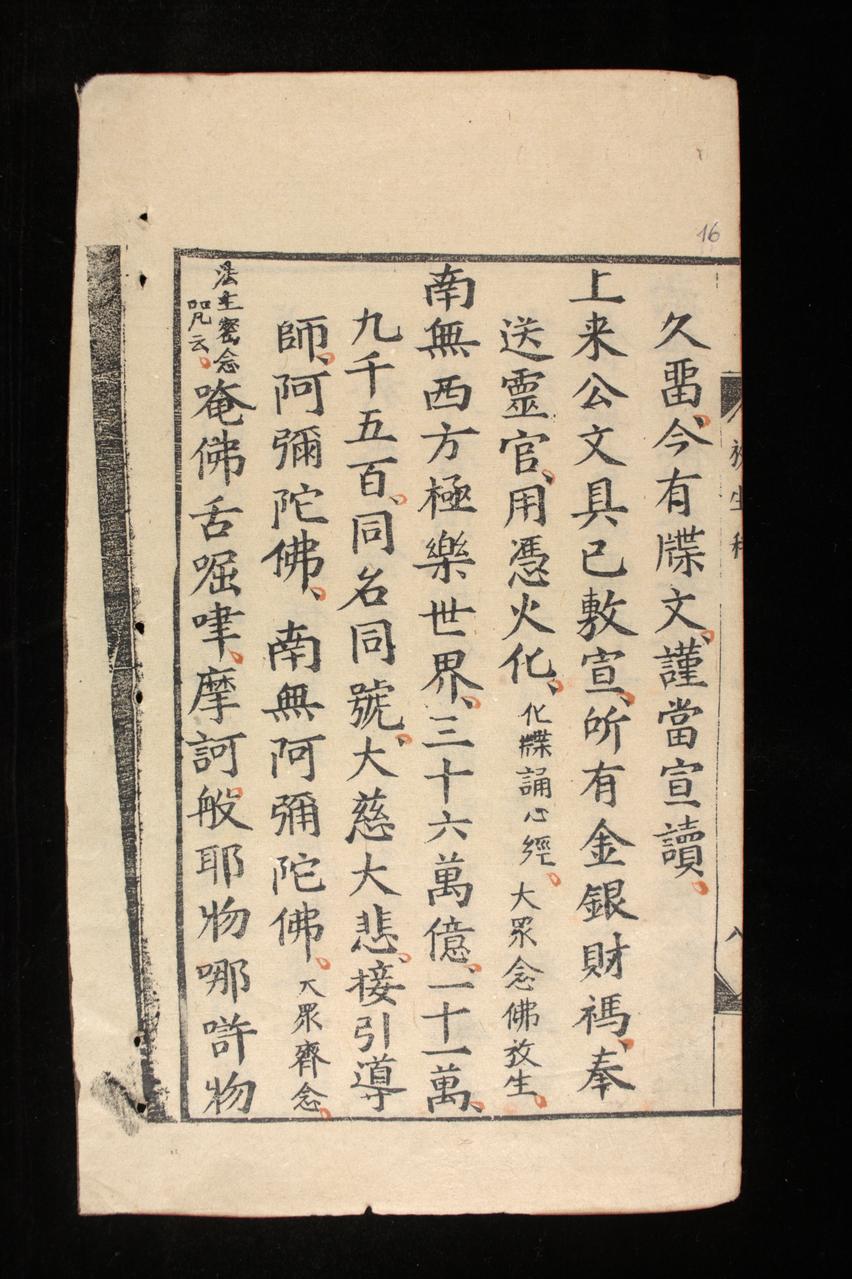 久畱、今有牒文、謹當宣讀。
上来公文具已敷宣、所有金銀財禡、奉
送靈官、用憑火化、化牒誦心經。大眾念佛放生。
南無西方極樂世界、三十六萬億、一十一萬、
九千五百。同名同號、大慈大悲。接引導
師、阿彌陀佛、南無阿彌陀佛。大眾齊念。
法主密念
咒凡云。
唵佛舌啒嗱、摩訶般耶物哪㖸物
放生科
八
16